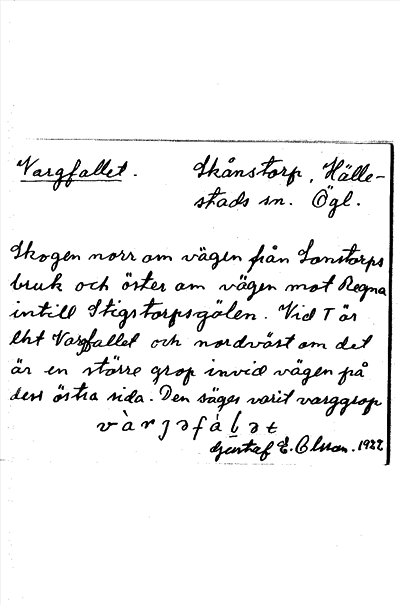 Vargfallet. Skånstorp, Hälle-
stads sn. Ögl.
Skogen norr om vägen från Sonstorps
bruk och öster om vägen mot Regna
intill Stigstorpsgölen. Vid T är
Vargfallet och nordväst om det
är en större grop invid vägen på
dess östra sida. Den säges varit varggrop
Gustaf E. Olsson. 1922